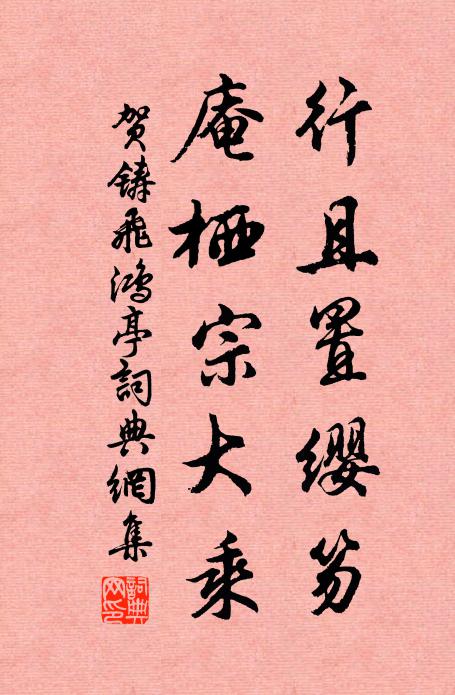 行且置缨笏
庵栖宗大乘
贺铸飛鸿亭詞典網集
詞典網印